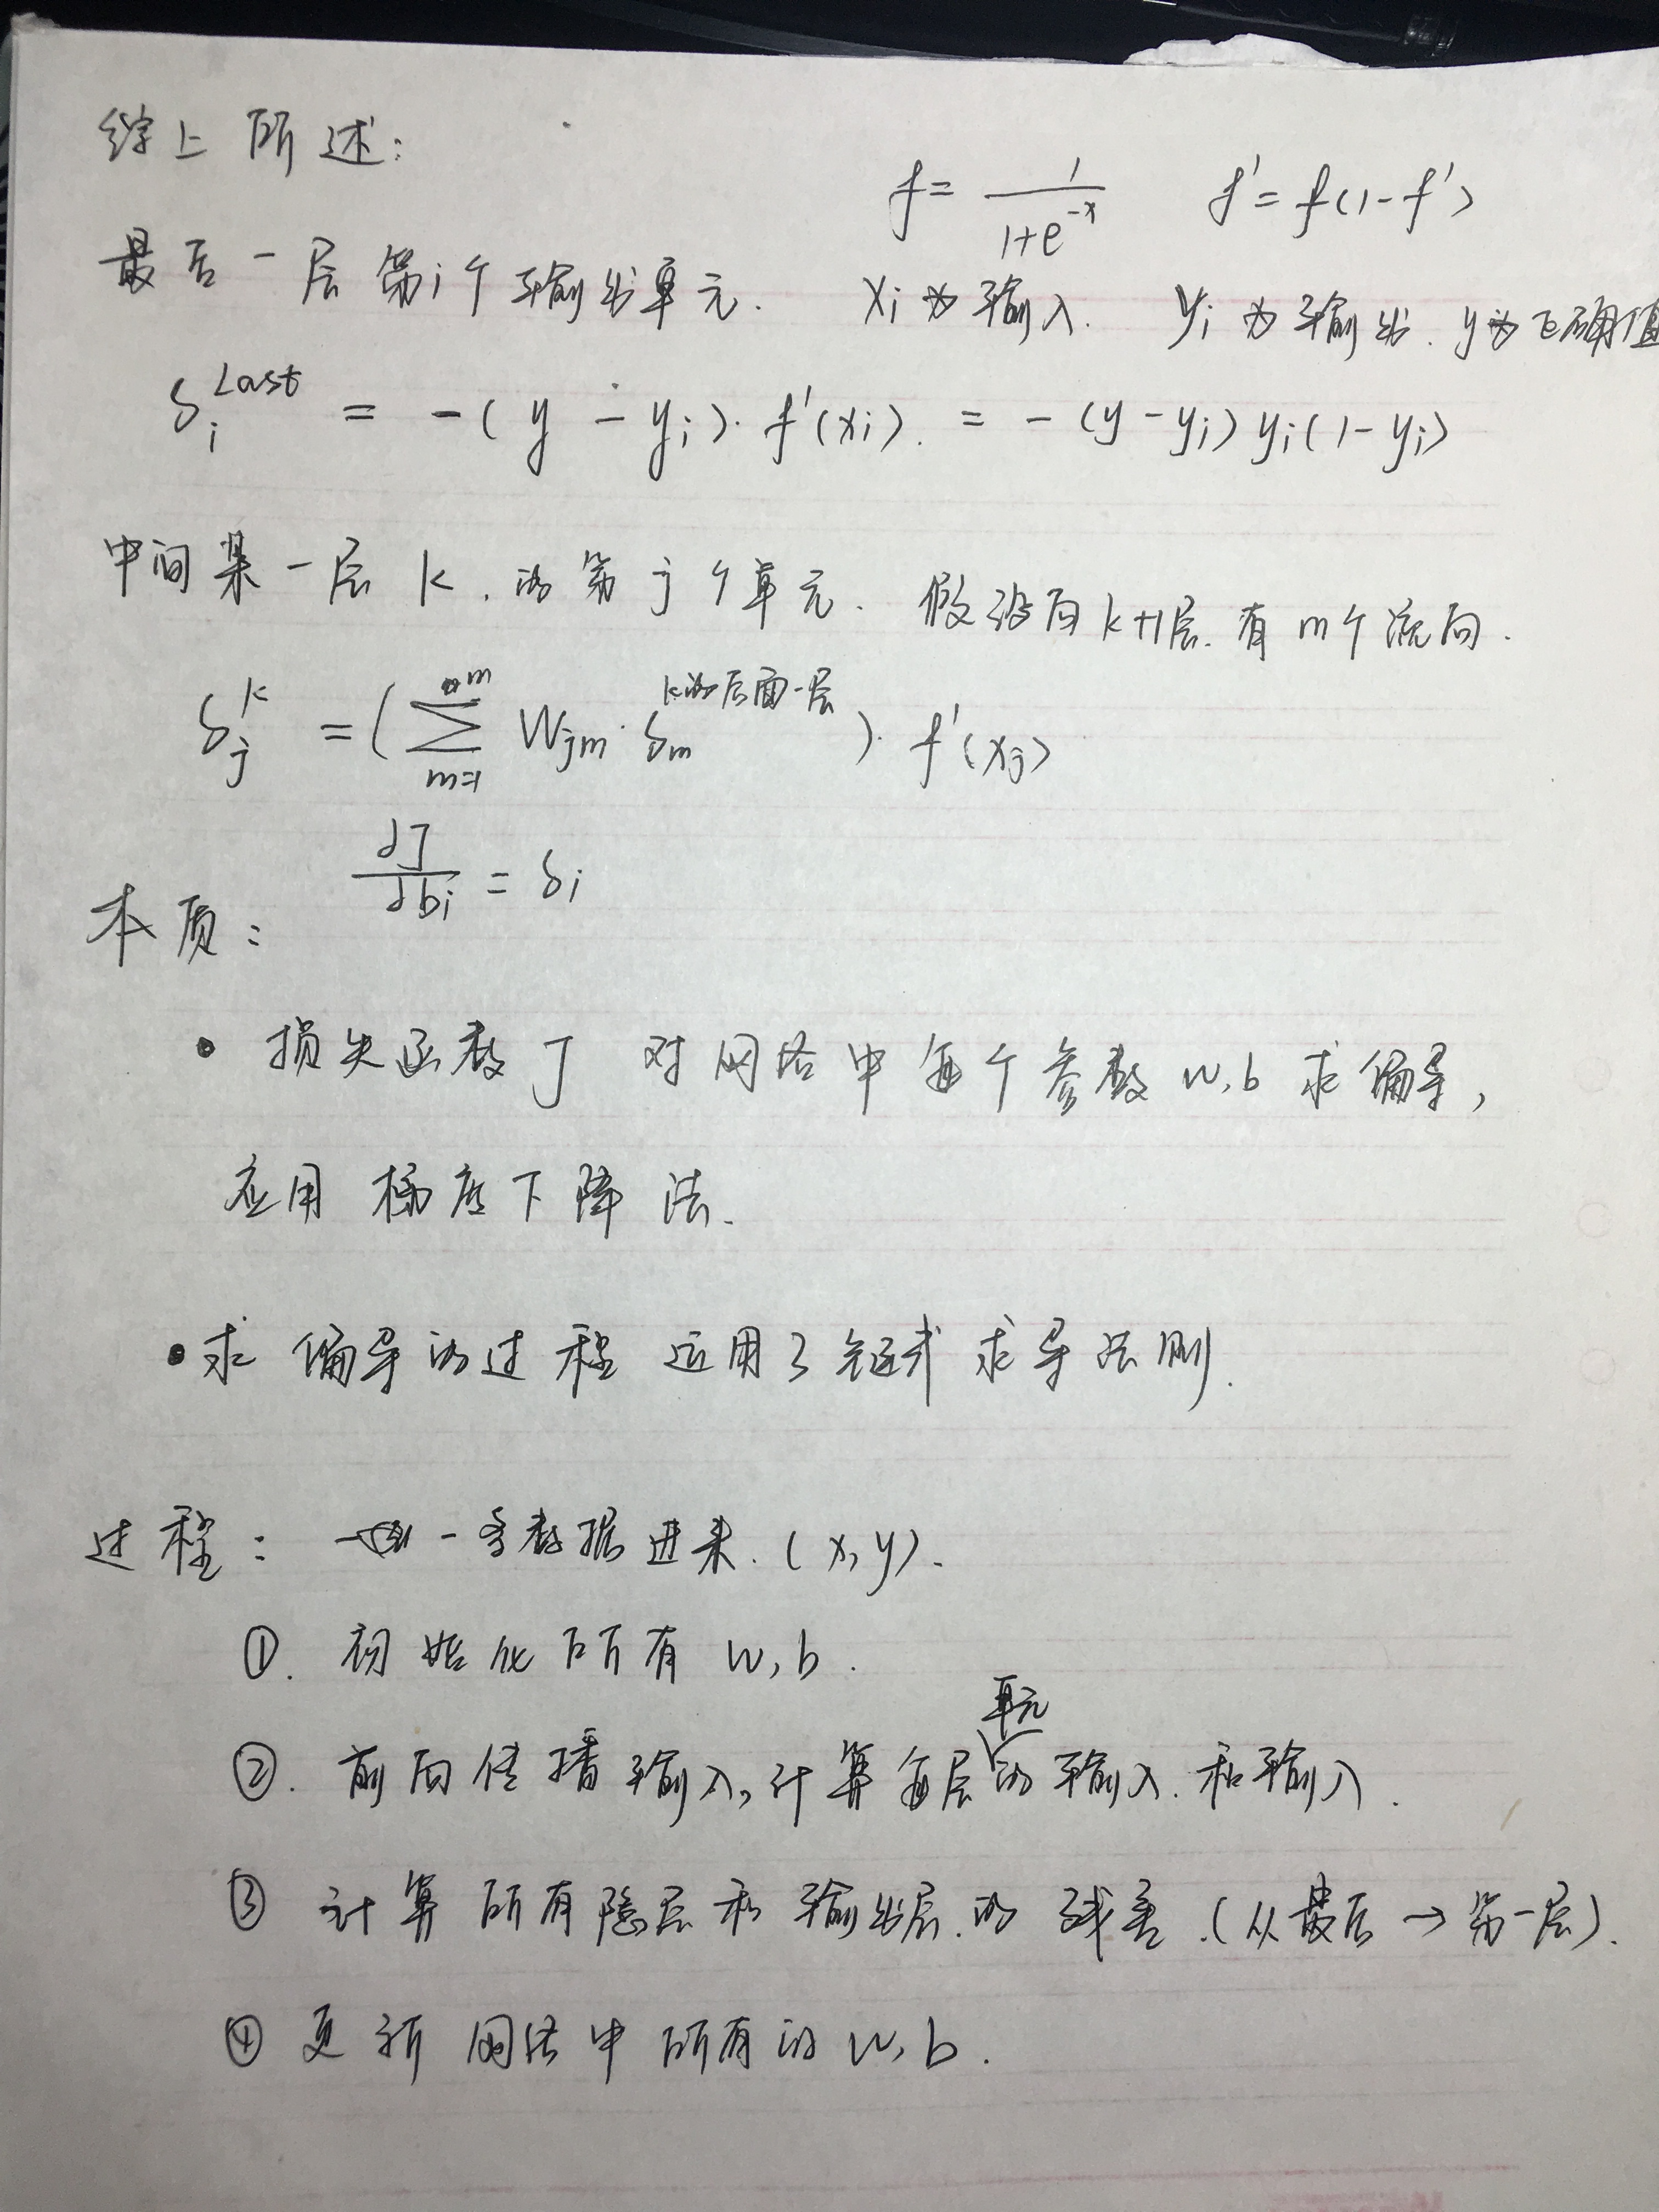 综上所述:
f = 1/(1+e^{-x})  f' = f(1-f')
最后一层第i个输出单元. xi为输入. yi为输出. y为正确值
δ_i^{Last} = -(y - yi)·f'(xi). = -(y-yi)yi(1-yi)
中间某一层 k. 的第j个单元. 假设向k+1层.有m个流向.
δ_j^k = (∑_{m=1}^{m} W_{jm}·δ_m^{k的后面一层})·f'(xj)
∂J/∂bi = δi
本质:
• 损失函数J 对网络中每个参数w,b求偏导,
应用梯度下降法.
• 求偏导的过程运用了链式求导法则.
过程: 一条数据进来.(x,y).
①. 初始化所有w,b.
②. 前向传播输入,计算每层单元的输入.和输入.
③ 计算所有隐层和输出层.的残差.(从最后→第一层).
④ 更新网络中所有的w,b.